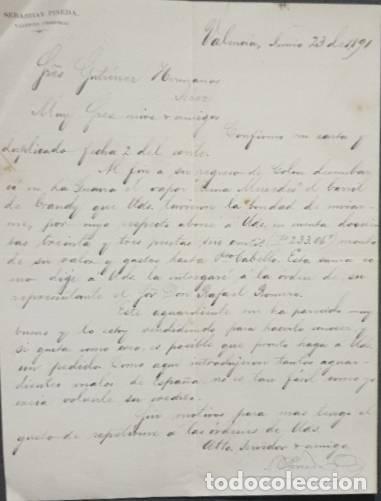 SEBASTIAN PINEDA.
VALENCIA (VENEZUELA)
Valencia, Junio 23 de 1891
Sres Gutiérrez Hermanos
Jerez
Muy Sres mios & amigos
Confirmo mi carta y
duplicado fecha 2 del corrte.
Al fin a su regreso de Colon desembar
có en La Guaira el vapor "Luna Mercedes" el barril
de Brandy que Uds. tuvieron la bondad de enviar-
me, por cuyo respecto aboné a Uds. en cuenta doscien
tas treinta y tres pesetas seis cmts. (Ps 233.06) monto
de su valor y gastos hasta Pto Cabello. Esta suma co
mo dije á Uds. la entregaré á la orden de su
representante el Sor Don Rafael Romero.
Este aguardiente me ha parecido muy
bueno y lo estoy vendiendo para hacerlo conocer y
si gusta como creo, es posible que pronto haga a Uds
un pedido. Como aqui introdujeron tantos aguar-
dientes malos de España no es tan fácil como yo
creia volverle su credito.
Sin motivos para mas tengo el
gusto de repetirme a las órdenes de Uds
Atto. Servidor & amigo
todocoleccion.net